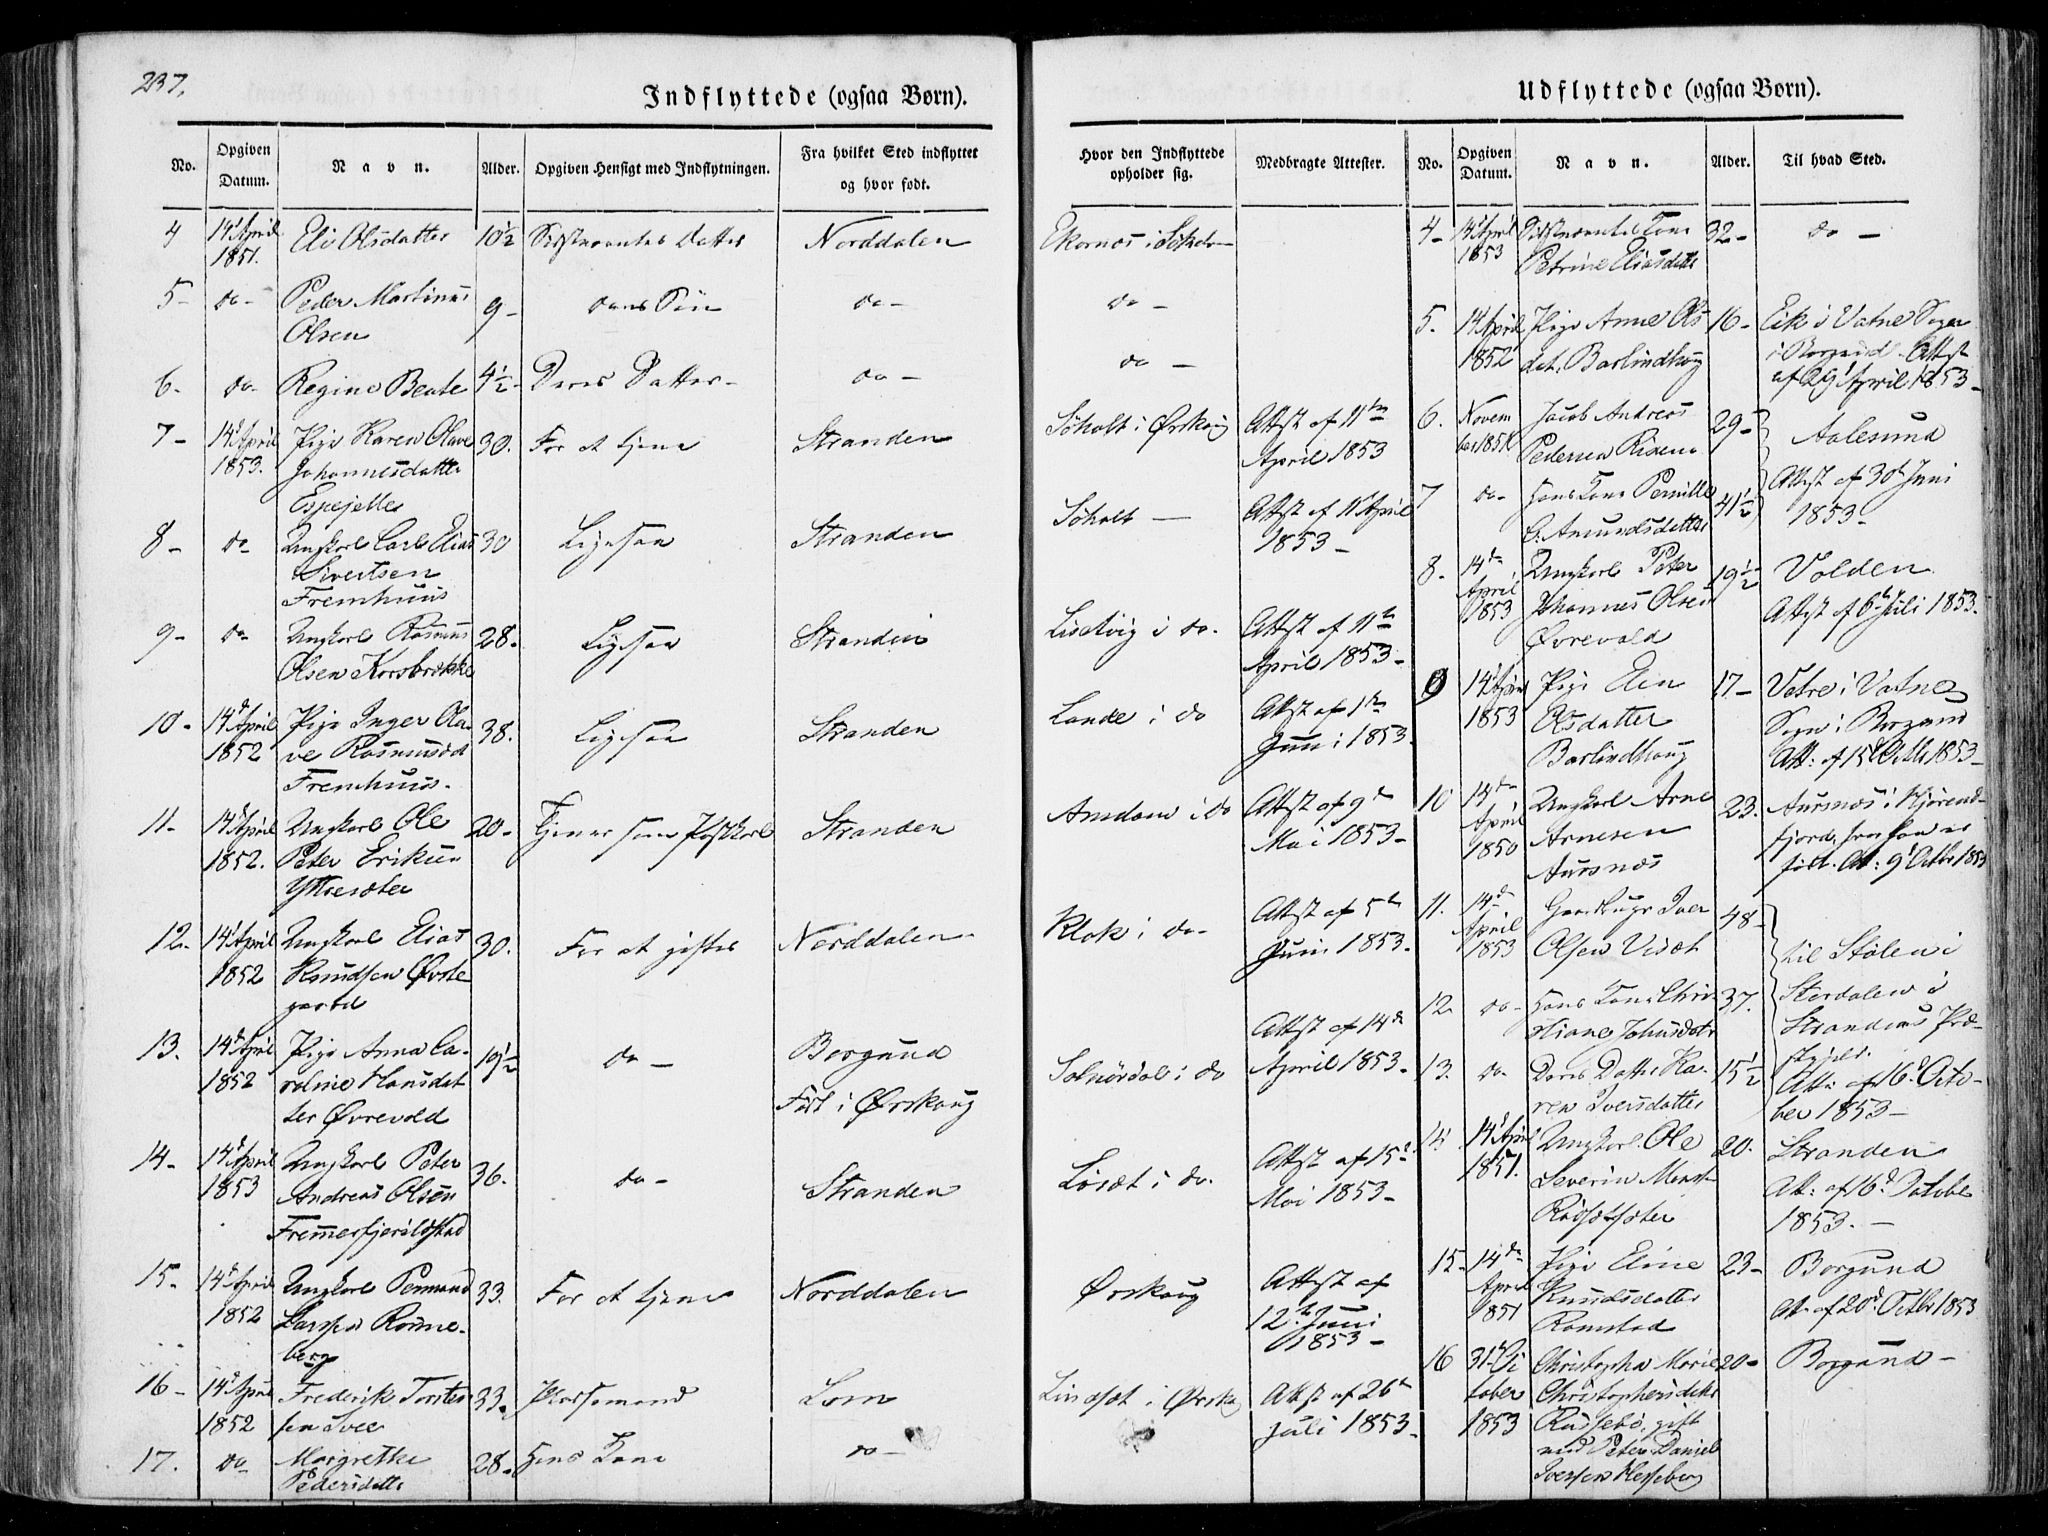 237.
Indflyttede (ogsaa Børn).
No.
Opgiven Datum.
Navn.
Alder.
Opgiven Hensigt med Indflytningen.
Fra hvilket Sted indflyttet og hvor født.
4 14d April 1851. Eli Olsdatter 10½ Sidstnævntes Datter Norddalen
5- do- Peder Martinus Olsen 9- deres Søn do-
6- do- Regine Beate 4½- Deres Datter- do-
7- 14d April 1853. Pige Karen Olave Johannesdatter Espejelle 30. For at tjene Stranden
8- do- Ungkarl Carl Elias Sivertsen Fremhuus 30 Ligesaa Stranden
9- do Ungkarl Rasmus Olsen Korsbrække 28. Ligesaa Stranden
10- 14d April 1852 Pige Inger Olave Rasmusd Fremhuus. 38. Ligesaa Stranden
11- 14d April 1852. Ungkarl Ole Peter Eriksen Ytresæter 20- Tjener som Postkarl Stranden
12- 14d April 1852 Ungkarl Elias Knudsen Øvstegaard 30. For at giftes Norddalen
13. 14d April 1852 Pige Anna Caroline Hansdatter Øvrevold 19½ do- Borgund Født i Ørskoug
14- 14d April 1853 Ungkarl Peter Andreas Olsen 36. do- Stranden
15- 14d April 1852 Ungkarl Larsen Rønneberg 33. For at tjene Norddalen
16- 14d April 1852 Frederik Torstensen 33. Pladsemand Lom
17. do Margrethe Pedersdatter 28- Hans Kone do-
Hvor den Indflyttede opholder sig.
Medbragte Attester.
Ekornæs i
do-
do-
Søholt i Ørskoug Attest af 11te April 1853
Søholt- Attest af 11te April 1853-
i do. Attest af 11te April 1853-
Lande i do Attest af 1te Juni 1853.
Amdam i do Attest af 9de Mai 1853-
Klok i do- Attest af 5te Juni 1853.
Solnørdal i do Attest af 14de April 1853-
Løset i do. Attest af 15de Mai 1853-
Ørskoug Attest af 12te Juni 1853-
Lindset i Attest af 26te Juli 1853-
Udflyttede (ogsaa Børn).
No.
Opgiven Datum.
Navn.
Alder.
Til hvad Sted.
4- 14d April 1853 Sidstnævntes Kone Petrine Eliasdatter 32- do-
5. 14d April 1852 Pige Anne Olsdat. Barlindhoug 16- Eik i Vatne Sogn i Borgund. Attest af 29d April 1853-
6. November Jacob Andreas Pedersen 29- Aalesund Attest af 30te Juni 1853-
7 do- Hans Kone Pernille Amundsdatter 41½
8- 14de April 1853 Ungkarl Peter Johannes Olsen Øvrevold 19½ Volden Attest af 6te Juli 1853.
9 14d April 1853 Pige Elen Olsdatter Barlindhoug 17- Vatne Sogn i Borgund Att: af 15d Octbr 1853-
10 14de April 1850 Ungkarl Arne Arnesen Aursnæs 23. Aursnæs i Hjørendfjord, hvor han er født. At: 9d Octbr 1853
11. 14de April 1853 Iver Olsen 48- til Stølen i Stordalen i Strandens Præstegjeld. Att: af 16d October 1853-
12. do- Hans Kone Christiane 37.
13. do- Deres Datter Karen Iversdatter 15½
14. 14d April 1851. Ungkarl Ole Severin 20. Stranden At: af 16d October 1853.-
15- 14de April 1851 Pige Eline Knudsdatter Ramstad 23- Borgund At. af 20d Octbr 1853
16 31te October 1853 Christopha Marie gift med Peter Daniel Iversen Hesseberg 20- Borgund-